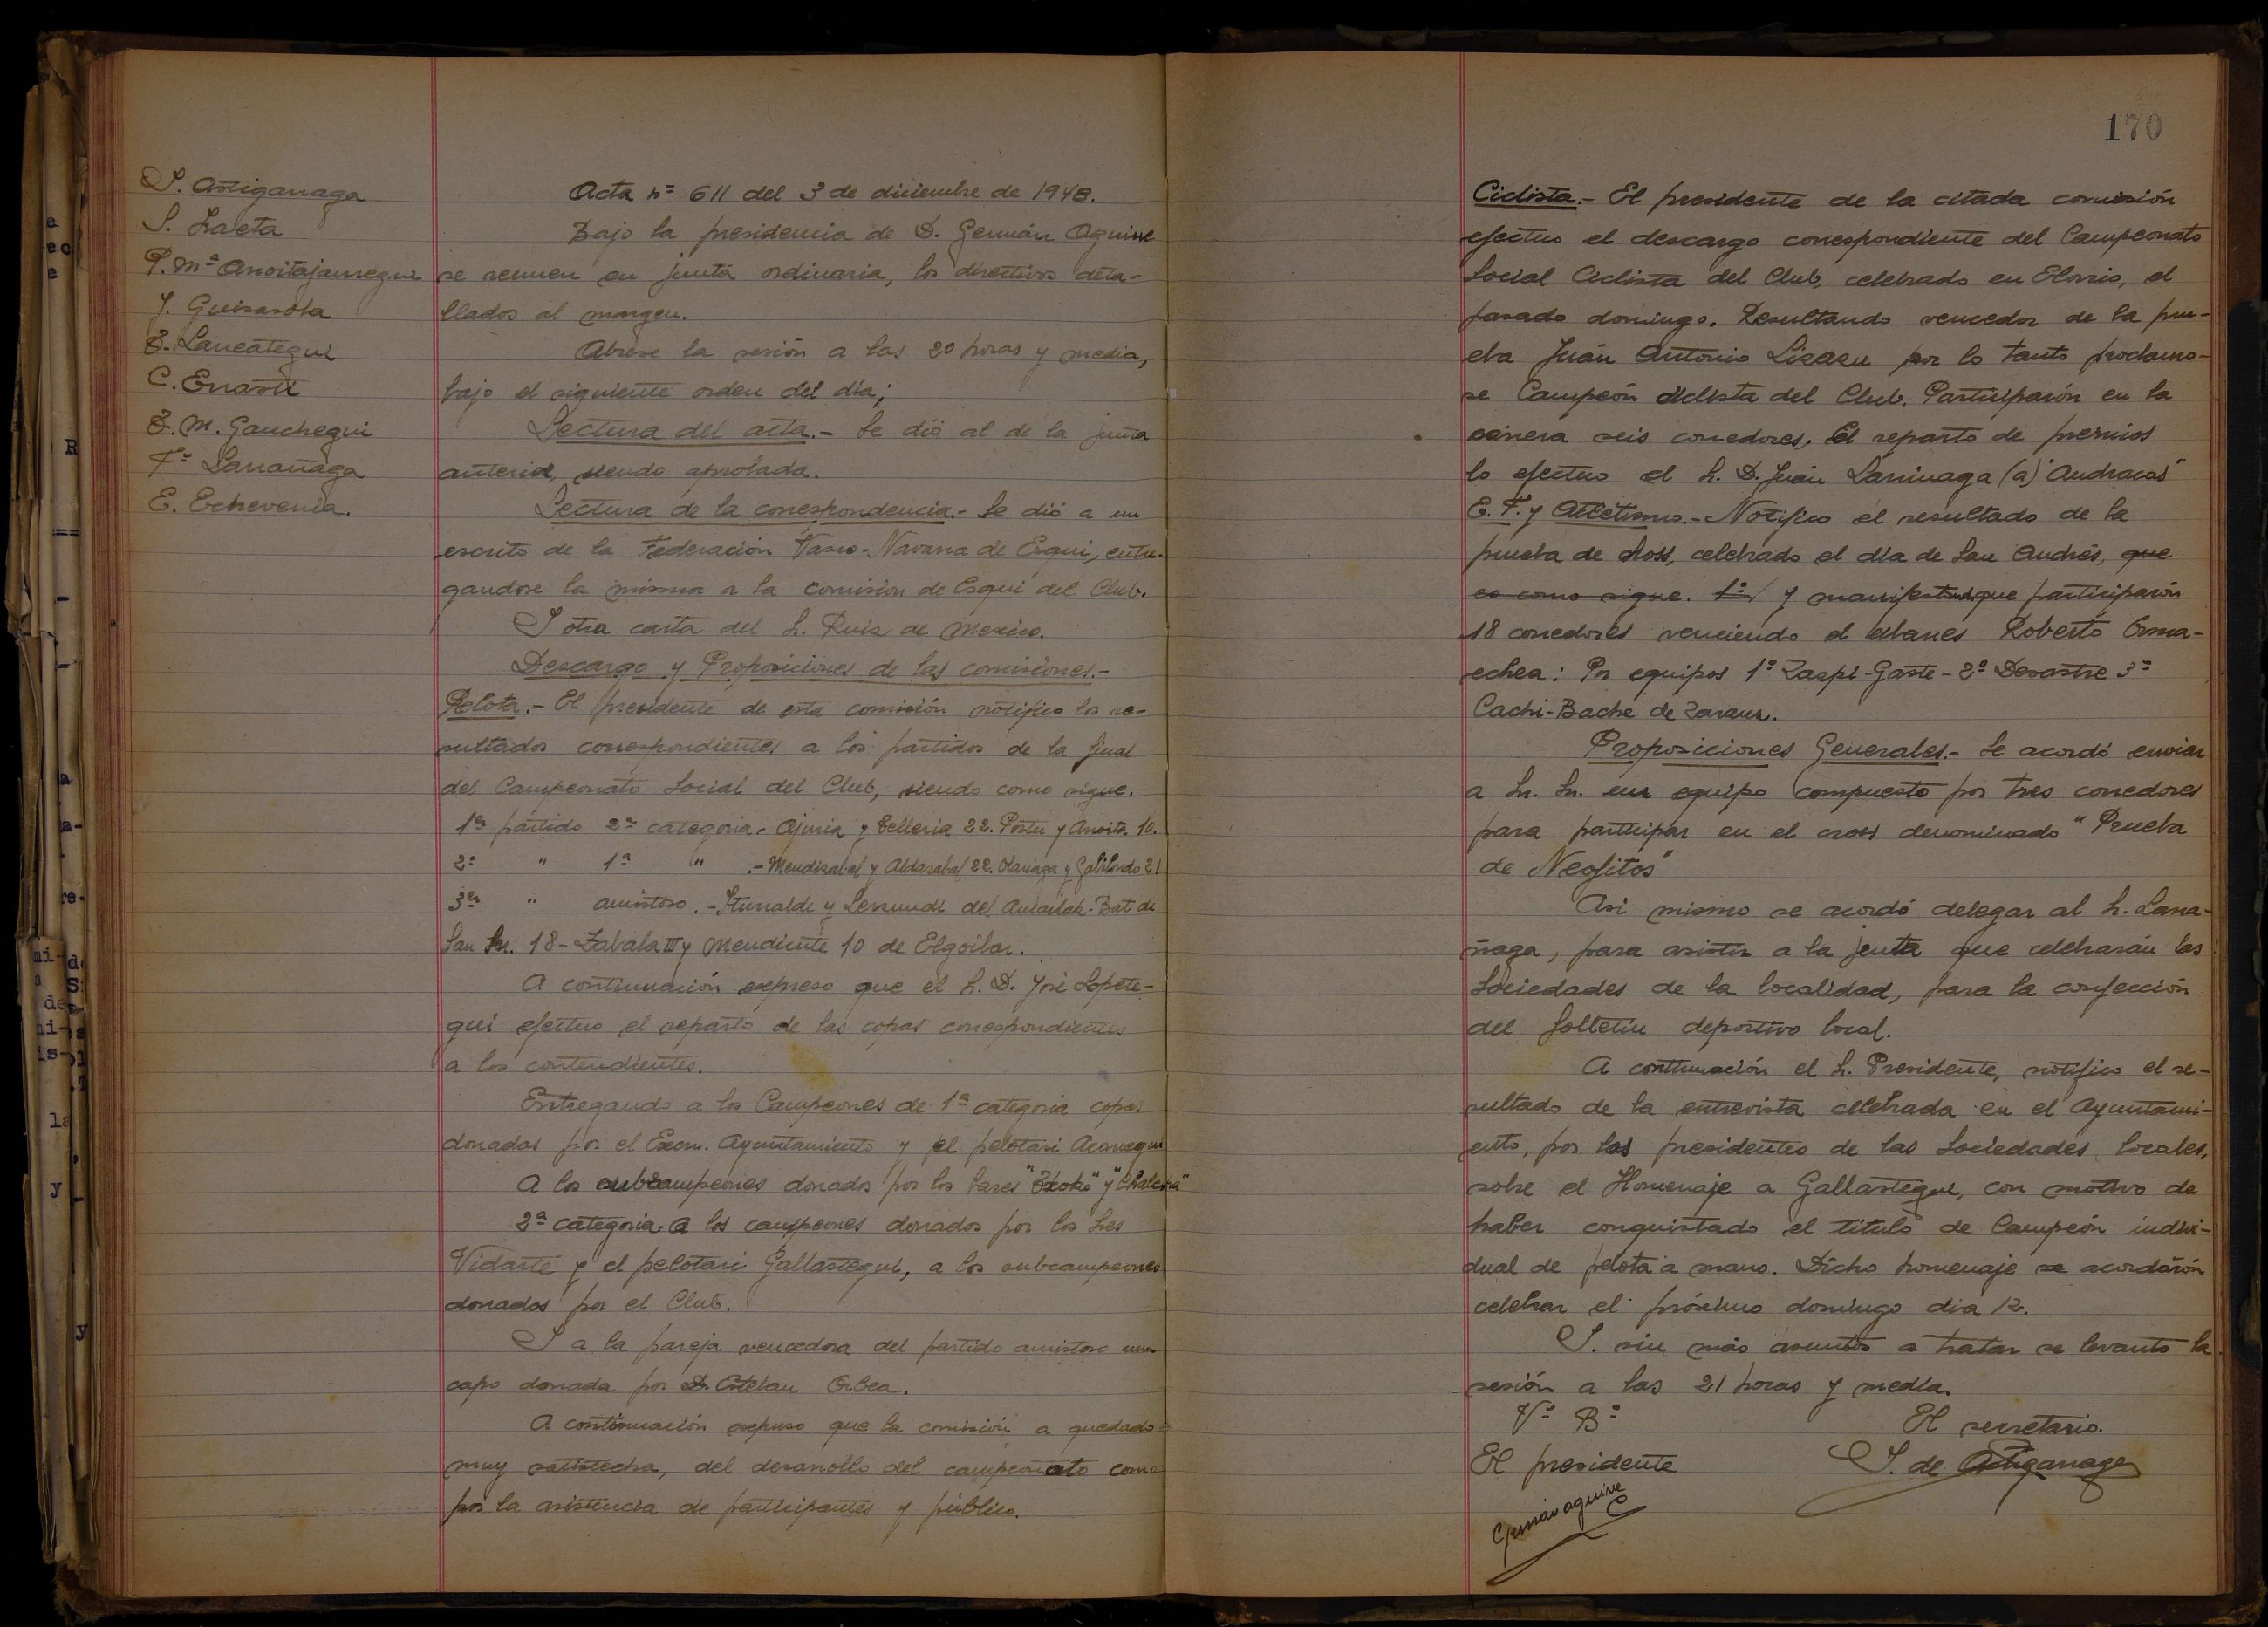 S. Astiganaga
S. Zaeta
P. Mª Anoitajauregui
J. Guisasola
J. Lancategui
C. Enasti
J. M. Gauchegui
Fº Lanañaga
E. Echeverria.
Acta nº 611 del 3 de diciembre de 1948.
Bajo la presidencia de D. Germán Aguirre
se reunen en junta ordinaria, los directivos deta-
llados al margen.
Abrese la sesión a las 20 horas y media,
bajo el siguiente orden del dia;
Lectura del acta.- Se dió al de la junta
anterior, siendo aprobada.
Lectura de la correspondencia.- Se dió a un
escrito de la Federación Vasco-Navarra de Esqui, entre-
gandose la misma a la comision de Esqui del Club.
I otra carta del S. Ruiz de Mexico.
Descargo y Proposiciones de las comisiones.-
Pelota.- El presidente de esta comisión notifico los re-
sultados correspondientes a los partidos de la final
del Campeonato Social del Club, siendo como sigue.
1er partido 2ª categoria.- Ajuria y Telleria 22. Postu y Anoita 10.
2º " 1ª " .- Mendizabal y Aldazabal 22. Olariaga y Gabilondo 21
3er " amistoso.- Iturralde y Lersundi del Amaikak-Bat de
San Sn. 18 - Zabala III y Mendicute 10 de Elgoibar.
A continuación expreso que el S. D. José Lopete-
gui efectuo el reparto de las copas correspondientes
a los contendientes.
Entregando a los Campeones de 1ª categoria copas
donadas por el Excm. Ayuntamiento y el pelotari Acarregui
A los subcampeones donados por los bares "Txoko" y "Chalcha"
2ª categoria. a los campeones donados por los Sres
Vidarte y el pelotari Gallastegui, a los subcampeones
donados por el Club.
I a la pareja vencedora del partido amistoso una
capo donada por D. Esteban Orbea.
A continuación expuso que la comisión a quedado
muy satisfecha, del desarrollo del campeonato como
por la asistencia de participantes y público.
170
Ciclista.- El presidente de la citada comisión
efectuo el descargo correspondiente del Campeonato
Social Ciclista del Club, celebrado en Elorrio, el
pasado domingo. Resultando vencedor de la prue-
eba Juán Antonio Lizasu por lo tanto proclamo-
se Campeón ciclista del Club. Participarón en la
carrera seis corredores. El reparto de premios
lo efectuo el S. D. Juán Larrinaga (a) "Andracas"
E. F. y Atletismo.- Notifico el resultado de la
prueba de kross, celebrado el dia de San Andrés, que
es como sigue. 1º/ y manifestando que participarón
18 corredores venciendo el eibarres Roberto Orma-
echea: Por equipos 1º Zazpi-Gazte - 2º Desastre 3º
Cachi-Bache de Zarauz.
Proposiciones Generales.- Se acordó enviar
a Sn. Sn. un equipo compuesto por tres corredores
para participar en el cross denominado "Prueba
de Neofitos"
Asi mismo se acordó delegar al S. Larra-
ñaga, para asistir a la junta que celebrarán las
Sociedades de la localidad, para la confección
del folletin deportivo local.
A continuación el S. Presidente, notifico el re-
sultado de la entrevista celebrada en el Ayuntami-
ento, por los presidentes de las Sociedades locales,
sobre el Homenaje a Gallastegui, con motivo de
haber conquistado el titulo de Campeón indivi-
dual de pelota a mano. Dicho homenaje se acordarón
celebrar el próximo domingo dia 12.
I. sin más asuntos a tratar se levanto la
sesión a las 21 horas y media.
Vº Bº
El secretario.
El presidente
S. de Astiganaga
Germán aguirre